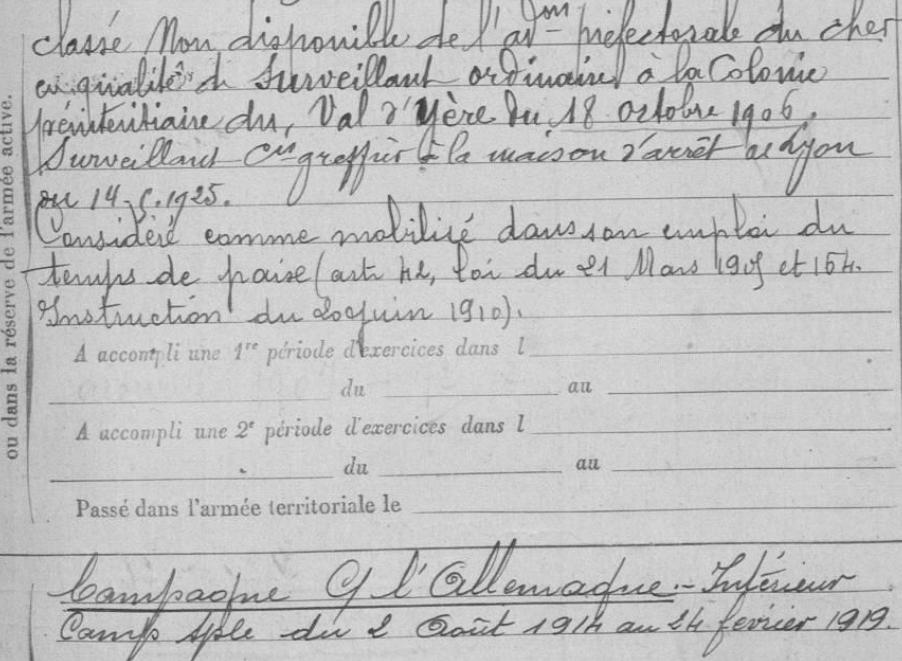 classé Non disponible de l'ad^on préfectorale du cher
en qualité de Surveillant ordinaire à la Colonie
pénitentiaire du, Val d'Yère du 18 octobre 1906.
Surveillant Cis greffier à la maison d'arrêt de Lyon
du 14. .1925.
Considéré comme mobilisé dans son emploi du
temps de paixe (art 42, loi du 21 Mars 1905 et 154.
Instruction du 20 Juin 1910).
A accompli une 1re période d'exercices dans l
du au
A accompli une 2e période d'exercices dans l
du au
Passé dans l'armée territoriale le
ou dans la réserve de l'armée active.
Campagne C l'Allemagne - Intérieur
Camp Sple du 2 Août 1914 au 24 février 1919.